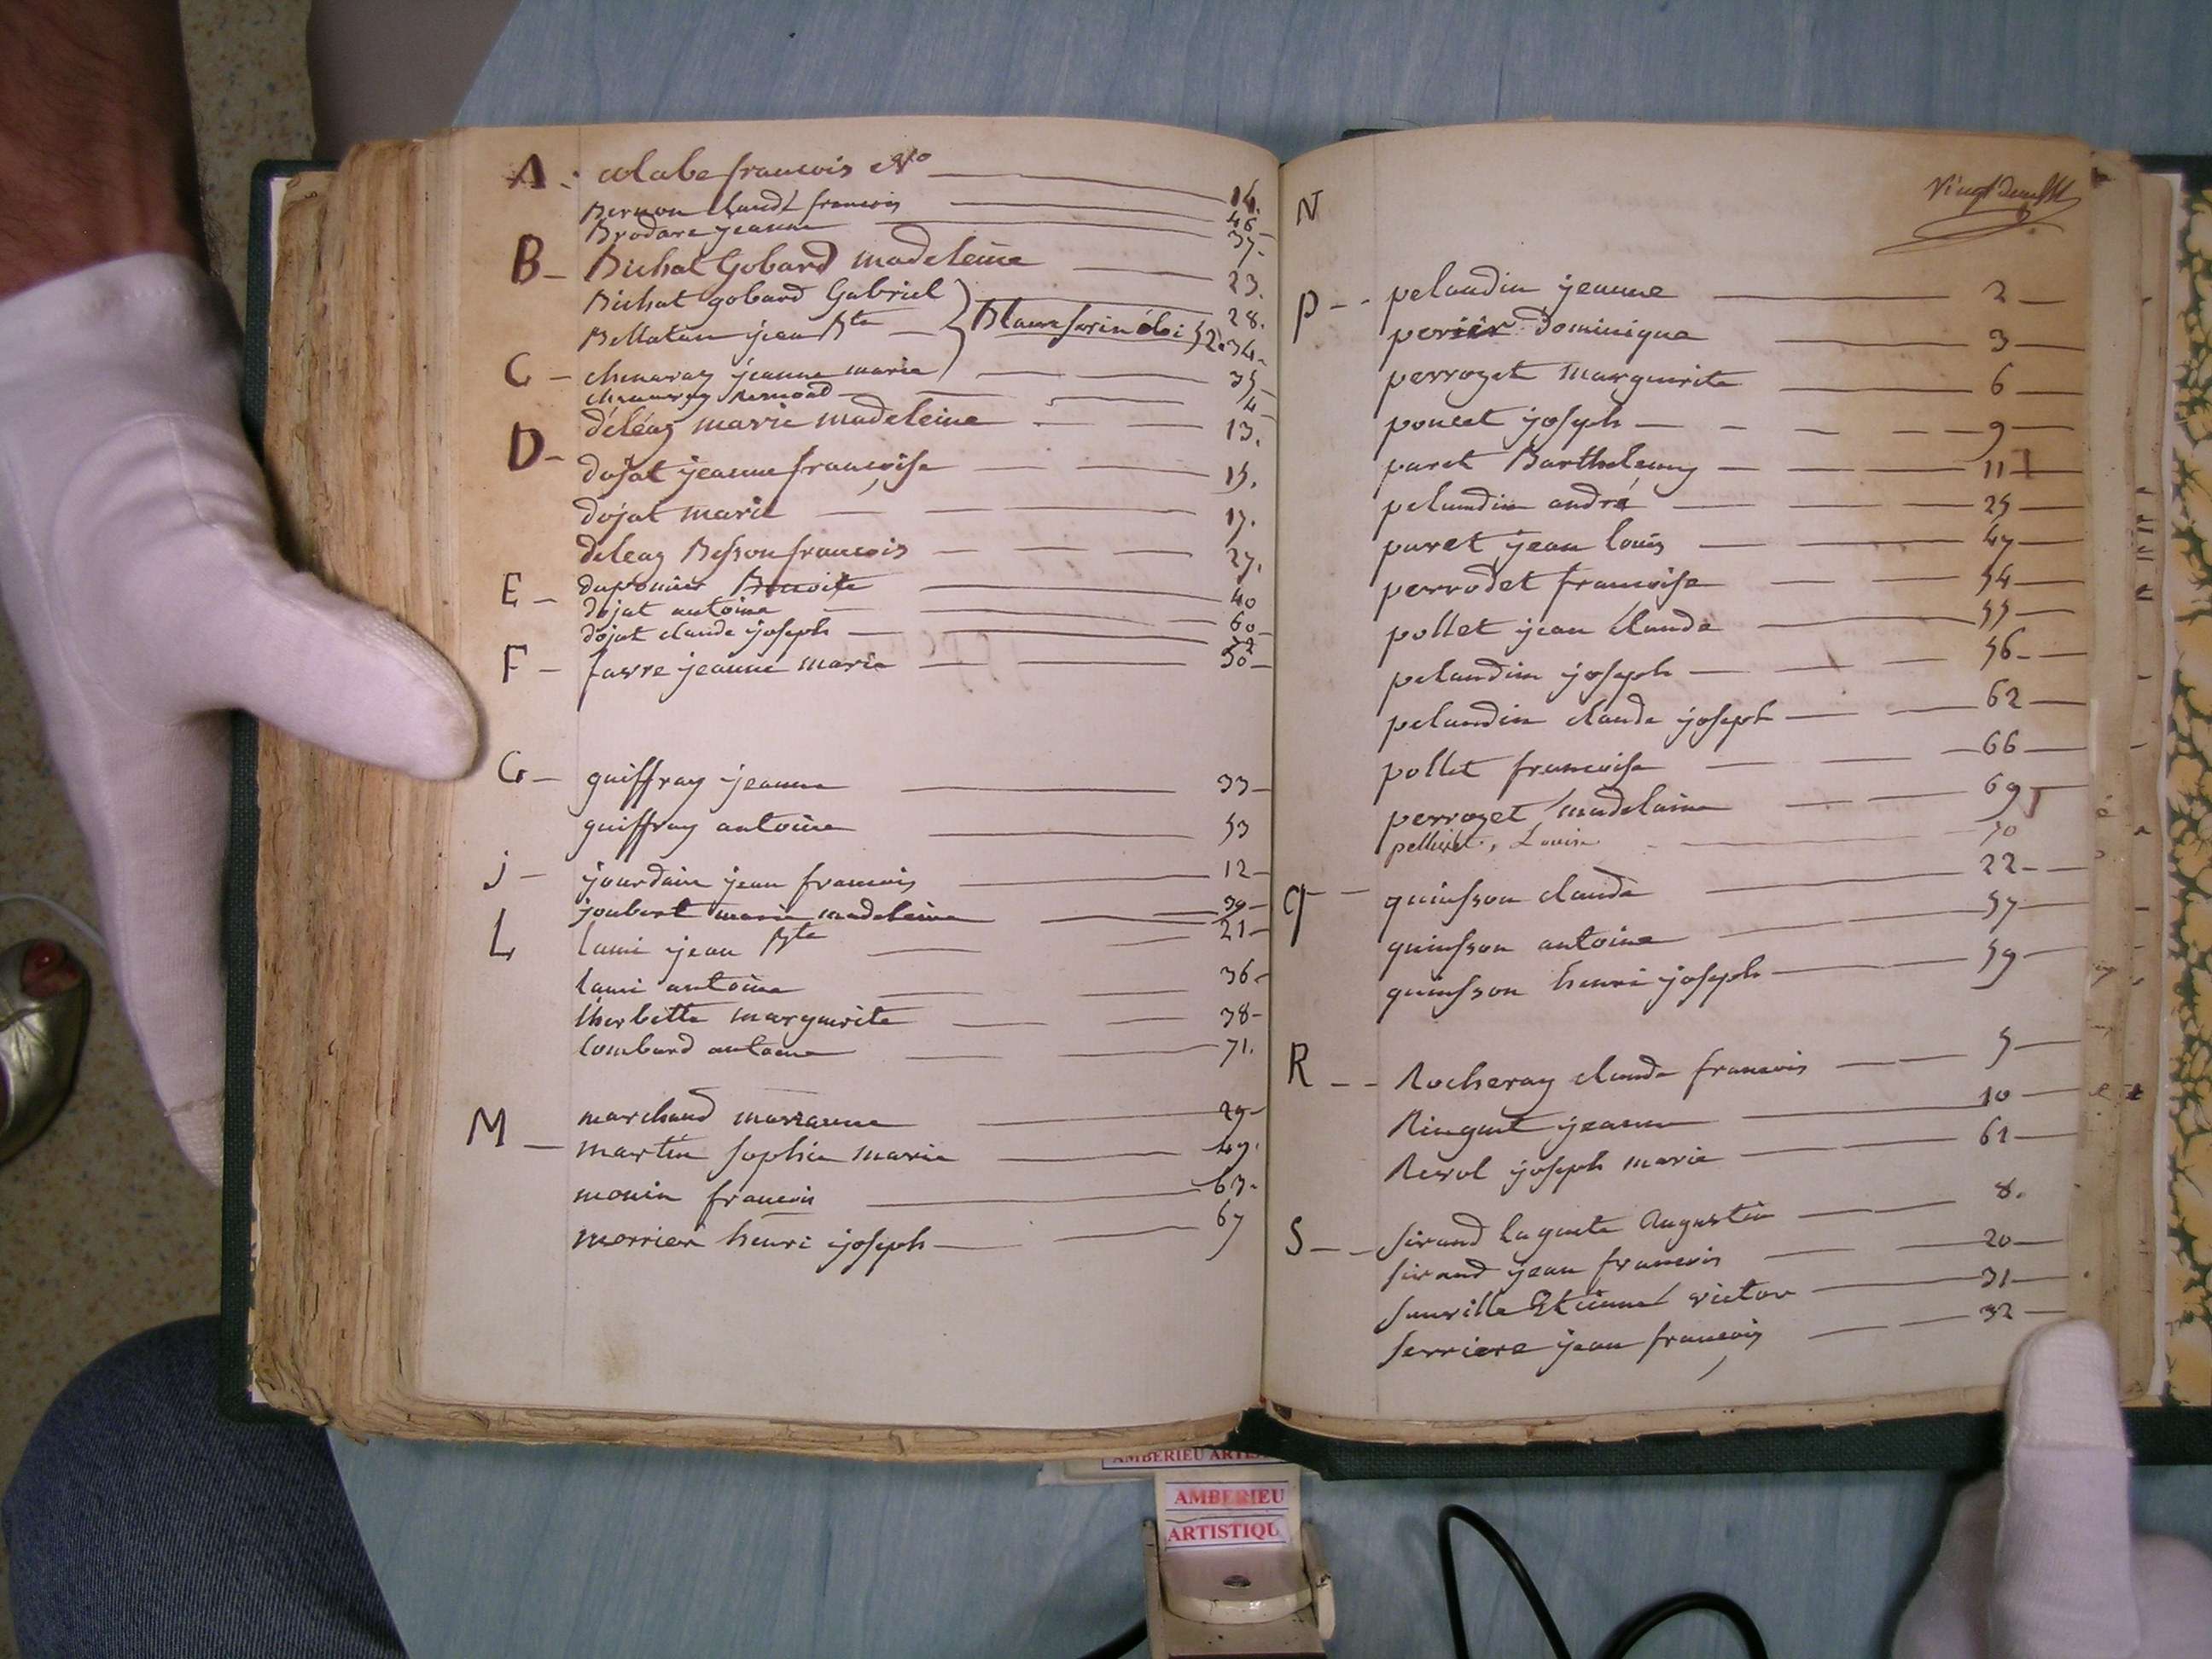 A. alabe francois No 14.
Bernon claude francois 46
Brodare jeanne 37.
B Bichat Gobard madeleine 23.
Bichat gobard Gabriel 28.
Bellaton jean Bte 34.
52.
C chenavay jeanne marie 35
chenavay 4
D déléaz marie madeleine 13.
dojat jeanne francoise 15.
dojat marie 17.
deleaz Besson francois 27.
E duponier Benoite 40
dojat antoine 60
dojat claude joseph
F favre jeanne marie 50
G guiffray jeanne 33
guiffray antoine 53
j jourdain jean francois 12
joubert marie madeleine 39
L lami jean Bte 21
lami antoine 36
lherbette marguerite 38
lombard antoine 71.
M marchand marianne 29
martin sophie marie 49.
monin francois 63.
merrier henri joseph 67
N
P pelaudin jeanne 2
perier dominique 3
perrozet marguerite 6
poncet joseph 9
paret Barthelemy 11
pelaudin andré 25
paret jean louis 47
perrodet francoise 54
pollet jean claude 55
pelaudin joseph 56
pelaudin claude joseph 62
pollet francoise 66
perrozet madelaine 69
Louise 70
q quinsson claude 22
quinsson antoine 57
quinsson henri joseph 59
R Rocheray claude francois 5
Ringuet jeanne 10
Revol joseph marie 61
S sirand laguete Augustin 8.
sirand jean francois 20
Etienne victor 31
serriere jean francois 32
AMBERIEU
AMBERIEU
ARTISTIQU